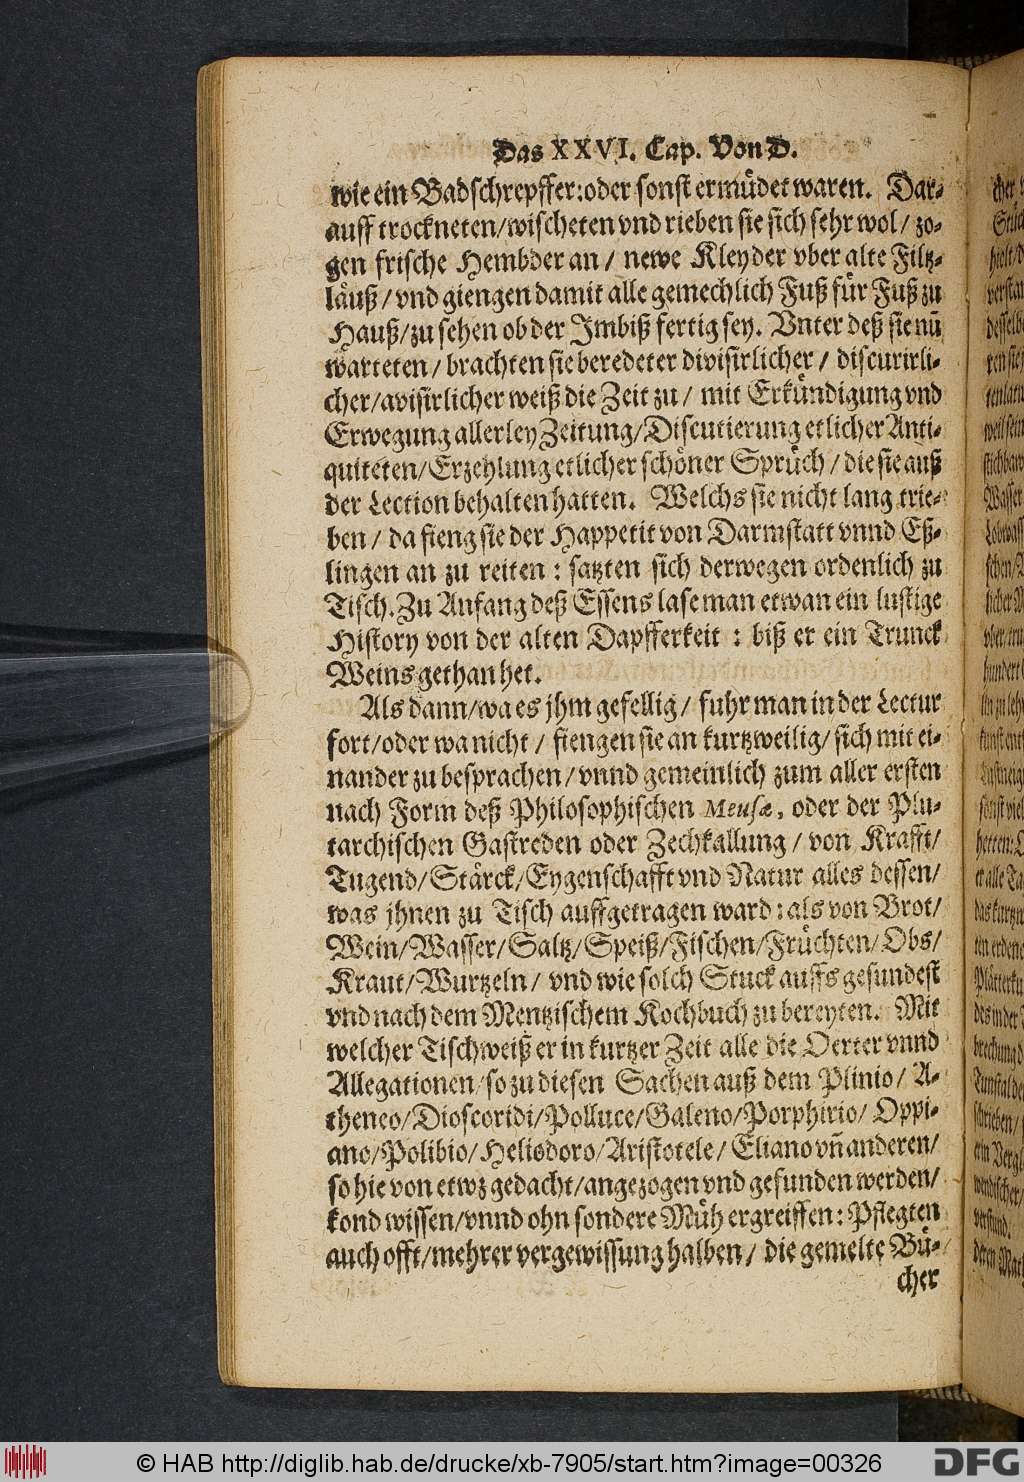 Das XXVI. Cap. Von D.
wie ein Badschrepffer: oder sonst ermüdet waren. Dar-
auff trockneten/wischeten vnd rieben sie sich sehr wol/ zo-
gen frische Hembder an/ newe Kleyder vber alte Filtz-
läuß/vnd giengen damit alle gemechlich Fuß für Fuß zu
Hauß/zu sehen ob der Imbiß fertig sey. Vnter deß sie nū
warteten/ brachten sie beredeter divisirlicher/ discurirli-
cher/avisirlicher weiß die Zeit zu/ mit Erkündigung vnd
Erwegung allerley Zeitung/Discutierung etlicher Anti-
quiteten/Erzehlung etlicher schöner Sprüch/ die sie auß
der Lection behalten hatten. Welchs sie nicht lang trie-
ben/ da fieng sie der Happetit von Darmstatt vnnd Eß-
lingen an zu reiten: satzten sich derwegen ordenlich zu
Tisch. Zu Anfang deß Essens lase man etwan ein lustige
History von der alten Dapfferkeit: biß er ein Trunck
Weins gethan het.
Als dann/wa es jhm gefellig/ fuhr man in der Lectur
fort/oder wa nicht/ fiengen sie an kurtzweilig/ sich mit ei-
nander zu besprachen/ vnnd gemeinlich zum aller ersten
nach Form deß Philosophischen Meusæ, oder der Plu-
tarchischen Gastreden oder Zechkallung/ von Krafft/
Tugend/Stärck/Eygenschafft vnd Natur alles dessen/
was jhnen zu Tisch auffgetragen ward: als von Brot/
Wein/Wasser/Saltz/Speiß/Fischen/Früchten/Obs/
Kraut/Wurtzeln/ vnd wie solch Stuck auffs gesundest
vnd nach dem Mentzischem Kochbuch zu bereyten. Mit
welcher Tischweiß er in kurtzer Zeit alle die Oerter vnnd
Allegationen/so zu diesen Sachen auß dem Plinio/ A-
theneo/Dioscoridi/Polluce/Galeno/Porphirio/ Oppi-
ano/Polibio/Heliodoro/Aristotele/ Eliano vñ anderen/
so hie von etwz gedacht/angezogen vnd gefunden werden/
kond wissen/vnnd ohn sondere Müh ergreiffen: Pflegten
auch offt/mehrer vergewissung halben/ die gemelte Bü-
cher
© HAB http://diglib.hab.de/drucke/xb-7905/start.htm?image=00326
DFG